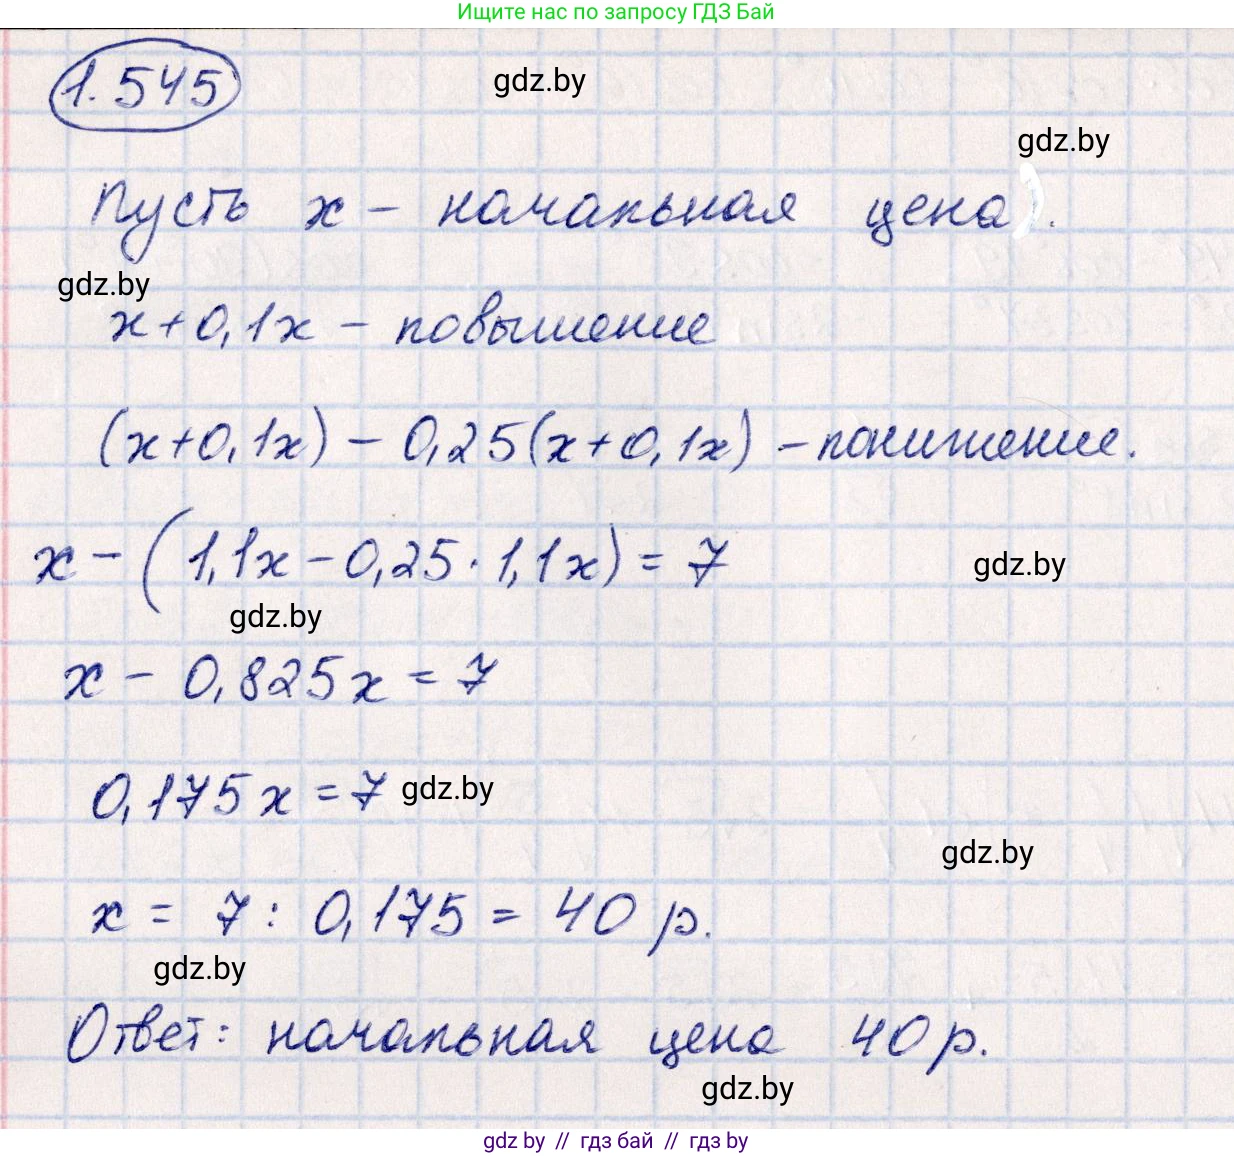 Ищите нас по запросу ГДЗ Бай
1.545
gdz.by
gdz.by
Пусть x – начальная цена.
gdz.by
x+0,1x – повышение
(x+0,1x) – 0,25(x+0,1x) – понижение.
x – (1,1x – 0,25·1,1x) = 7
gdz.by
gdz.by
x – 0,825x = 7
0,175x = 7
gdz.by
gdz.by
x = 7 : 0,175 = 40 р.
gdz.by
Ответ: начальная цена 40 р.
gdz.by
gdz by // гдз бай // гдз by